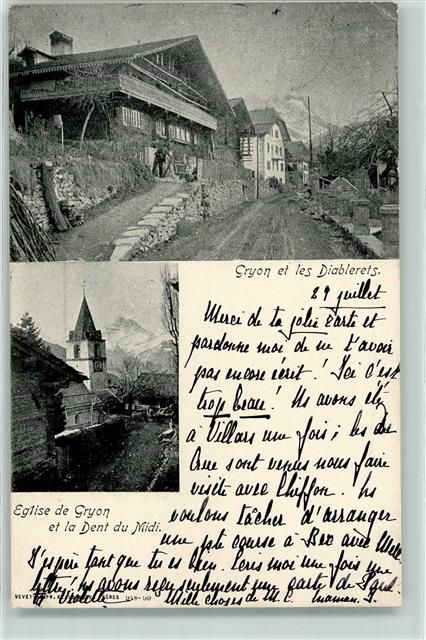 Gryon et les Diablerets.
29 juillet
Merci de ta jolie carte et
pardonne moi de ne t'avoir
pas encore écrit! Ici c'est
trop beau! Ns avons été
à Villars une fois; les de
Crue sont venus nous faire
visite avec Chiffon. Ns
voulons tâcher d'arranger
une pte course à Bex avec Mlle
J'espère tant que tu es bien. Ecris moi une fois une
lettre! ns avons reçu seulement une carte de
Mille choses de M. C. maman.
Eglise de Gryon
et la Dent du Midi.